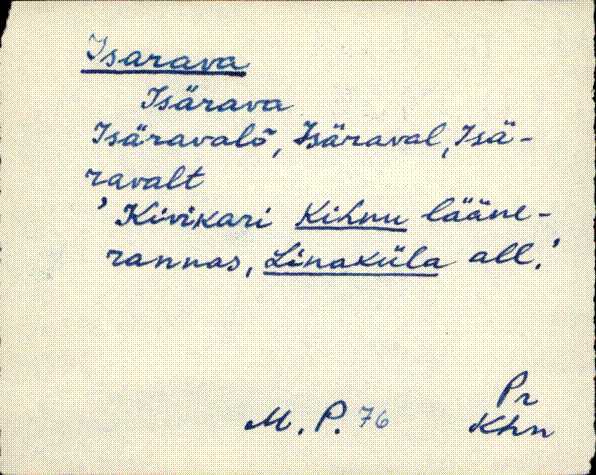 Isarava
Isärava
Isäravalõ, Isäraval, Isä-
ravalt
'Kivikari Kihnu lääne-
rannas, Linaküla all.'
Pr
M. P. 76 Khn